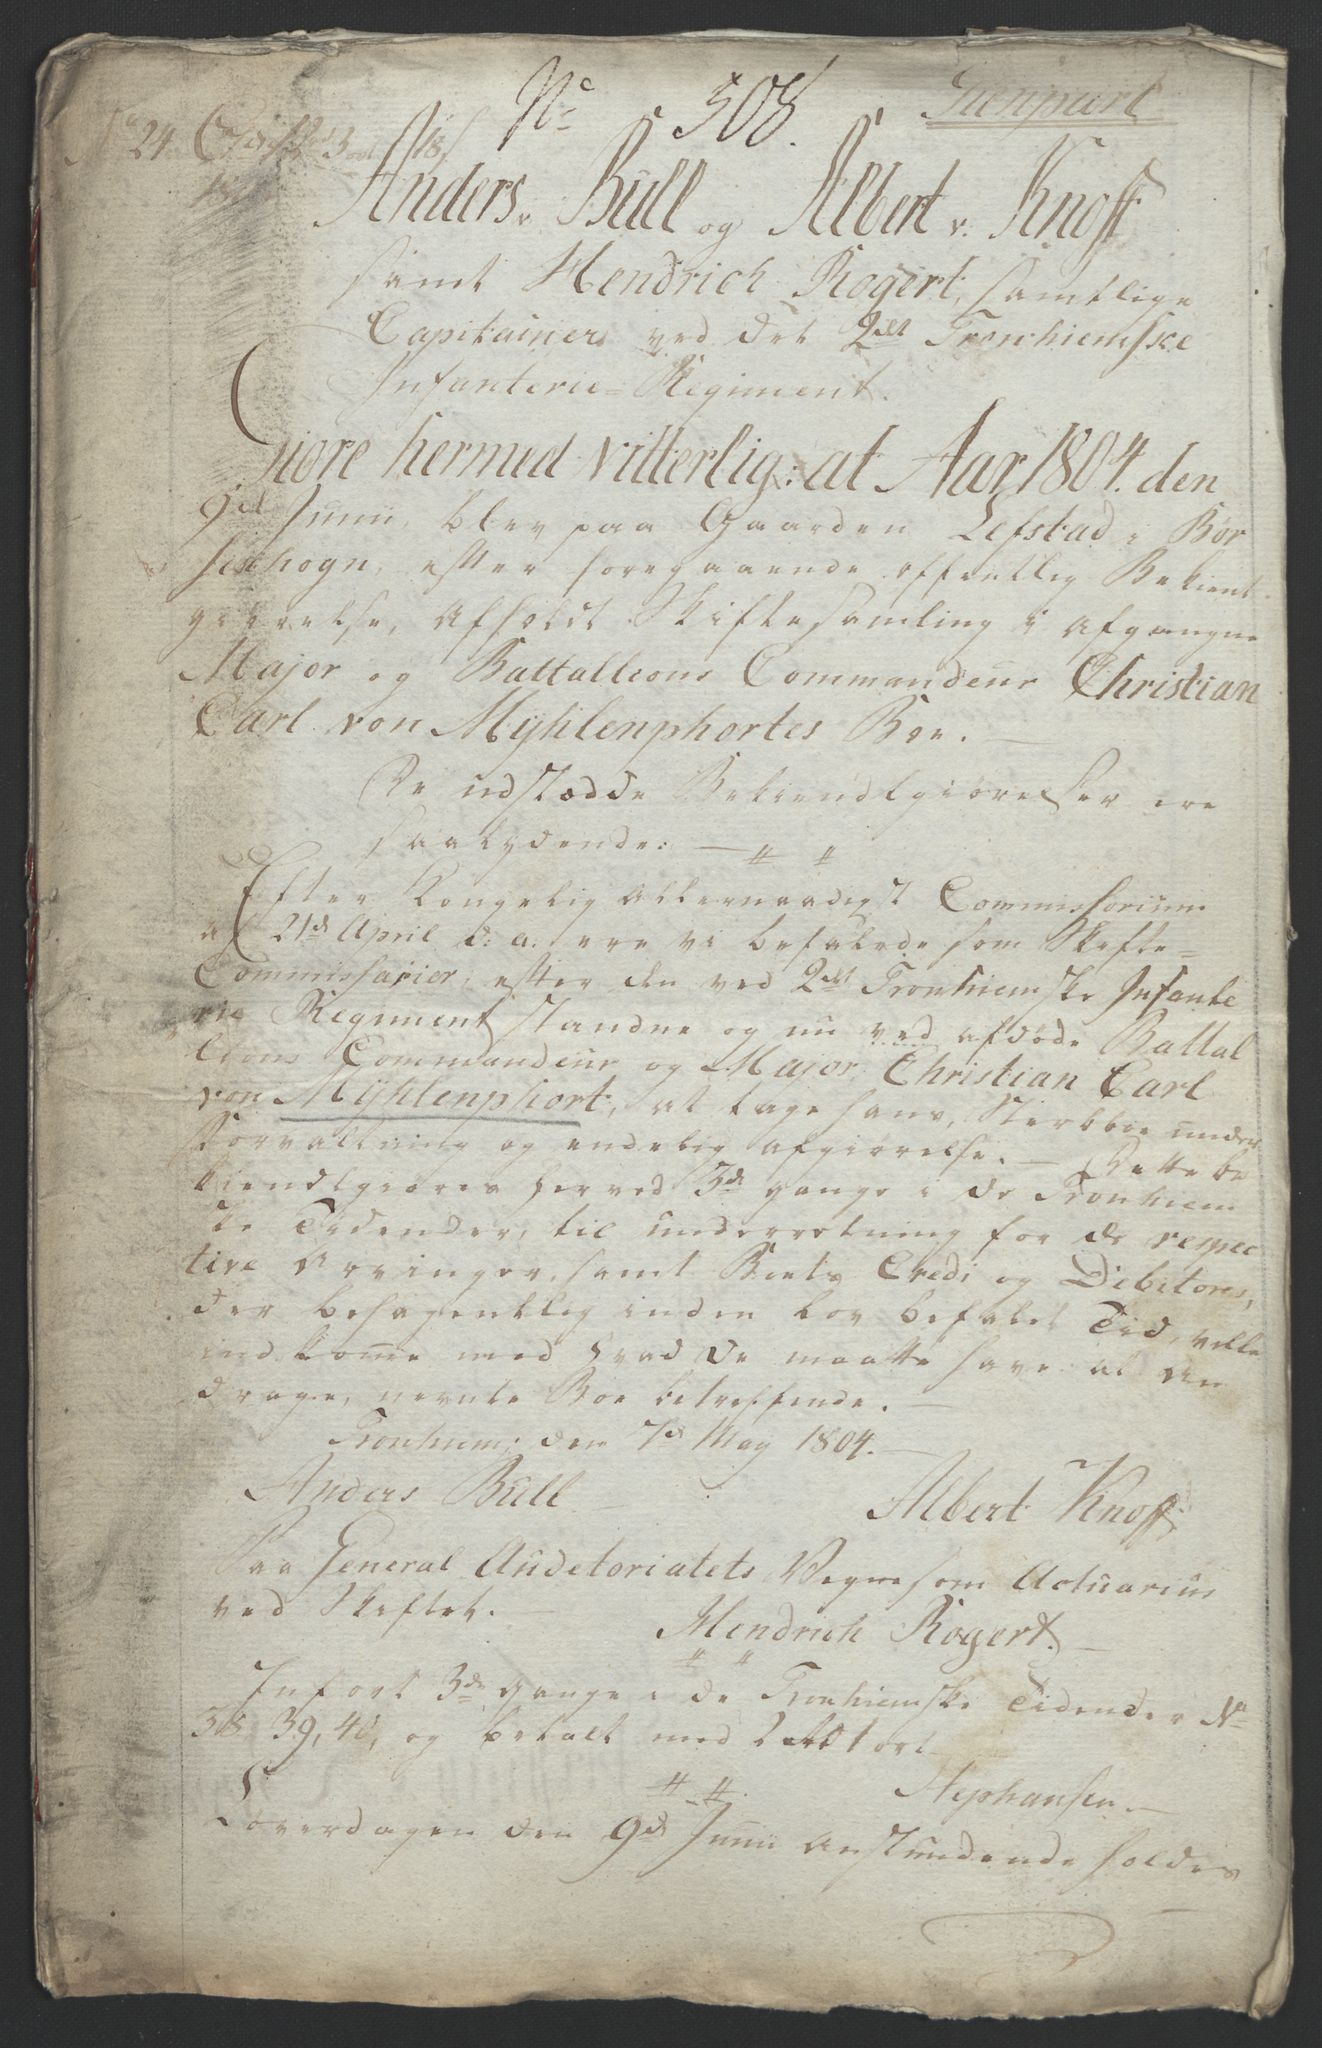 No 508. Gienpart
No 24
Anders v. Bull og Albert v. Knoff
samt Hendrich Rogert, samtlige
Capitainer ved det 2det Tronhiemske
Infanterie=Regiment.
Giøre hermed vitterlig: at Aar 1804. den
9de Junii, blev paa Gaarden Lefstad i Bør
seschogn, efter foregaaende offentlig Bekient
giørelse, afholdt Skiftesamling i afgangne
Major og Battallions Commandeur Christian
Carl von Myhlenphortes Boe. —
De udstædde Bekiendtgiørelser ere
saalydende: —
Efter Kongelig allernaadigst Commissorium
af 21de April d: a: ere vi befalede som Skifte=
Commissarier, efter den ved 2det Tronhiemske Infante
rie Regiment staaende og nu ved afdøde Battal
lions Commandeur og Major Christian Carl
von Myhlenphort, at tage hans Sterbboe under
Forvaltning og endelig afgiørelse. — Dette be
kiendtgiøres herved 3de gange i de Tronhiem
ske Tidender, til underretning for de respec
tive Arvinger, samt Boets Credi og Debitores,
der behagentlig inden lov befalet Tid, ville
indkomme med hvad de maatte have at an
drage, nevnte Boe betreffende. —
Tronhiem, den 7de May 1804. —
Anders Bull Albert Knoff
Paa General Auditoriatets Vegne som Actuarius
ved Skiftet. —
Hendrich Rogert. —
Infort 3de gange i de Tronhiemske Tidender No
38, 39, 40, og betalt med 1 ort
Stephansen. —
Løverdagen den 9de Junii anstundende holdes